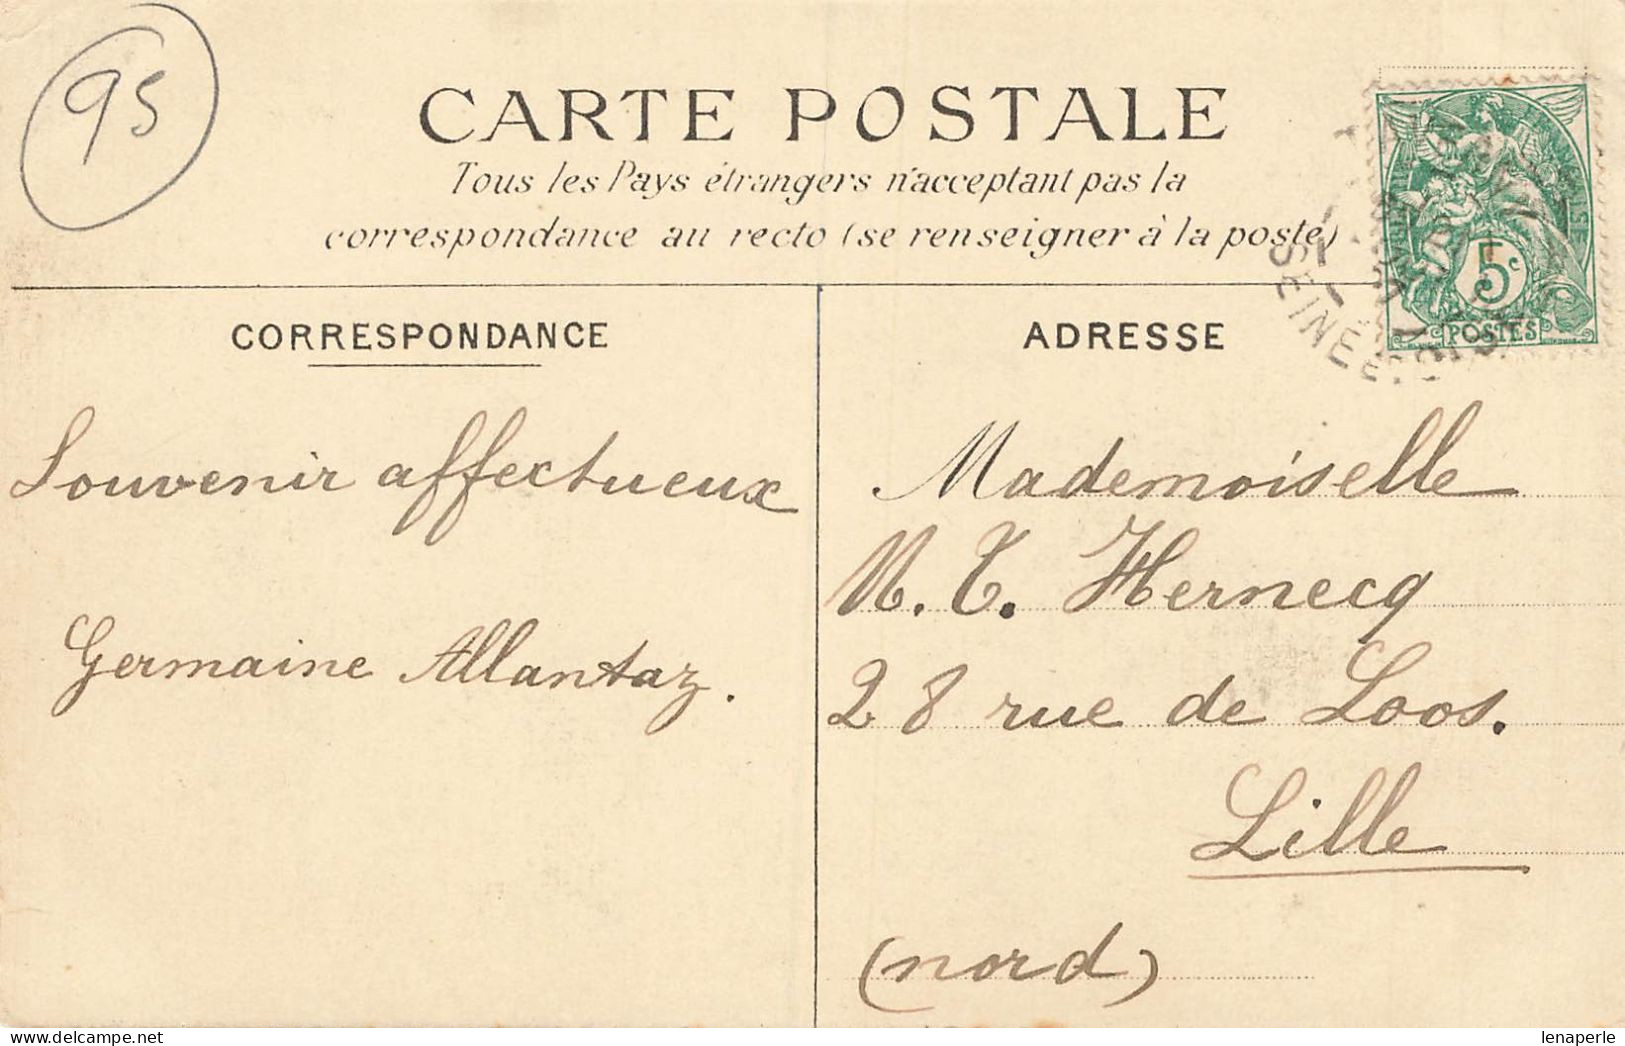 95
CARTE POSTALE
Tous les Pays étrangers n'acceptant pas la
correspondance au recto (se renseigner à la poste)
CORRESPONDANCE
Souvenir affectueux
Germaine Allantaz.
ADRESSE
5c
POSTES
SEINE
Mademoiselle
M. T. Hernecq
28 rue de Loos.
Lille
(nord)
delcampe.net
lenaperle